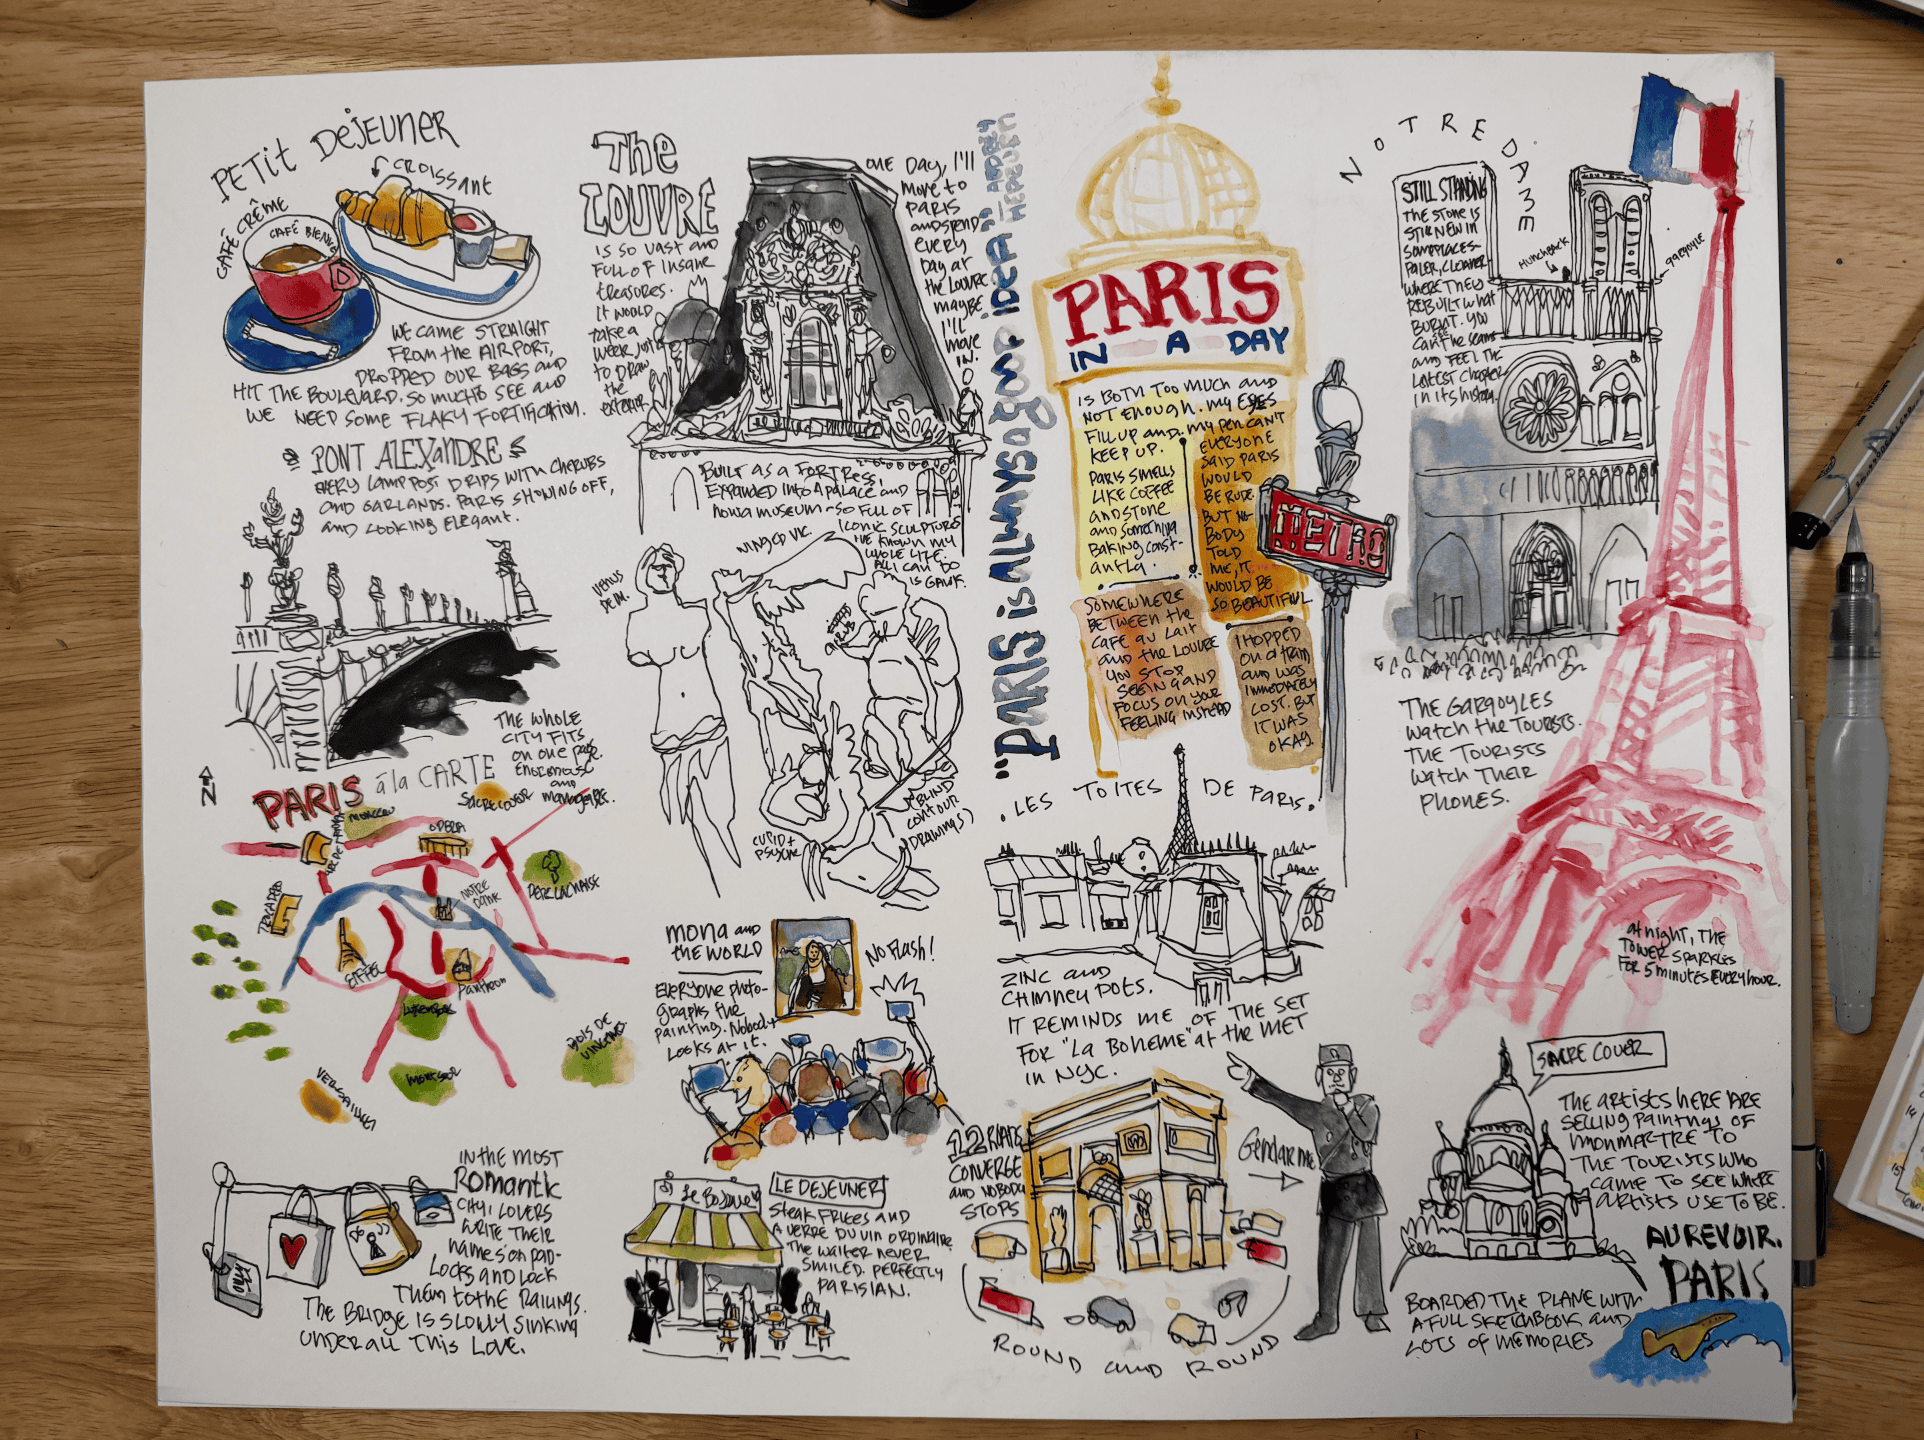 PETIT DEJEUNER
CROISSANT
CAFÉ CRÊME
CAFÉ BIENVE
WE CAME STRAIGHT
FROM the AIRPORT,
DROPPED OUR BAGS AND
HIT THE BOULEVARD. SO MUCH TO SEE AND
WE NEED SOME FLAKY FORTIFICATION.
PONT ALEXANDRE
EVERY LAMP POST DRIPS WITH CHERUBS
AND GARLANDS. PARIS SHOWING OFF,
AND LOOKING ELEGANT.
THE WHOLE
CITY FITS
ON ONE PAGE.
ENORMOUS
AND
MANAGEABLE.
N
PARIS á la CARTE
SACRE COUER
MONCEAU
OPERA
ARC DE TRIOMPHE
PERE LACHAISE
TROCADERO
NOTRE
DAME
EIFFEL
Pantheon
LUXEMBOURG
BOIS DE
VINCENNES
MONTSOURIS
VERSAILLES
IN THE MOST
ROMANTIC
CITY, LOVERS
WRITE THEIR
NAMES ON PAD-
LOCKS AND LOCK
THEM TO THE RAILINGS.
THE BRIDGE IS SLOWLY SINKING
UNDER ALL THIS LOVE.
The
LOUVRE
IS SO VAST AND
FULL OF INSANE
TREASURES.
IT WOULD
TAKE A
WEEK JUST
TO DRAW
THE
EXTERIOR.
ONE DAY, I'll
MOVE TO
PARIS
AND SPEND
EVERY
DAY AT
the LOUVRE
MAYBE
I'LL
MOVE
IN.
BUILT AS A FORTRESS,
EXPANDED INTO A PALACE AND
NOW A MUSEUM - SO FULL OF
ICONIC SCULPTURE
I'VE KNOWN MY
WHOLE LIFE.
ALL I CAN DO
IS GAWK.
VENUS
DE M.
WINGED VIC.
CUPID +
PSYCHE
(BLIND
CONTOUR
DRAWINGS)
MONA AND
THE WORLD
EVERYONE PHOTO-
GRAPHS THE
PAINTING. NOBODY
LOOKS AT IT.
NO FLASH!
LE DEJEUNER
STEAK FRITES AND
A VERRE DU VIN ORDINAIRE
THE WAITER NEVER
SMILED. PERFECTLY
PARISIAN.
"PARIS is ALWAYS a good IDEA" AUDREY
HEPBURN
PARIS
IN A DAY
IS BOTH TOO MUCH AND
NOT ENOUGH. MY EYES
FILL UP AND MY PEN CAN'T
KEEP UP.
PARIS SMELLS
LIKE COFFEE
AND STONE
AND SOMETHING
BAKING CONST-
ANTLY.
EVERYONE
SAID PARIS
WOULD
BE RUDE.
BUT NO-
BODY
TOLD
ME, IT
WOULD BE
SO BEAUTIFUL
SOMEWHERE
BETWEEN THE
CAFE AU LAIT
AND THE LOUVRE
YOU STOP
SEEING AND
FOCUS ON YOUR
FEELING INSTEAD
I HOPPED
ON A TRAIN
AND WAS
IMMEDIATELY
LOST. BUT
IT WAS
OKAY.
METRO
LES TOITES DE PARIS.
ZINC AND
CHIMNEY POTS.
IT REMINDS ME OF THE SET
FOR "La BOHEME" AT THE MET
IN NYC.
12 ROADS
CONVERGE
AND NOBODY
STOPS
Gendarme
ROUND AND ROUND
NOTRE DAME
STILL STANDING
THE STONE IS
STILL NEW IN
SOME PLACES-
PALER, CLEANER
WHERE THEY
REBUILT WHAT
BURNT. YOU
CAN SEE THE SEAMS
AND FEEL THE
LATEST CHAPTER
IN ITS HISTORY.
HUNCHBACK
GARGOYLE
THE GARGOYLES
WATCH THE TOURISTS.
THE TOURISTS
WATCH THEIR
PHONES.
AT NIGHT, THE
TOWER SPARKLES
FOR 5 MINUTES EVERY HOUR.
SACRE COUER
THE ARTISTS HERE ARE
SELLING PAINTINGS OF
MONMARTRE TO
THE TOURISTS WHO
CAME TO SEE WHERE
ARTISTS USE TO BE.
AU REVOIR.
PARIS
BOARDED THE PLANE WITH
A FULL SKETCHBOOK AND
LOTS OF MEMORIES